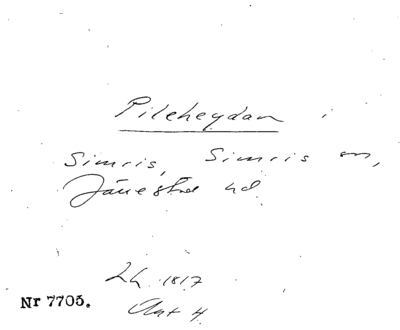 Pileheydan i
Simris, Simris sn,
Järrestad hd
Lh. 1817
Akt 4
Nr 7705.